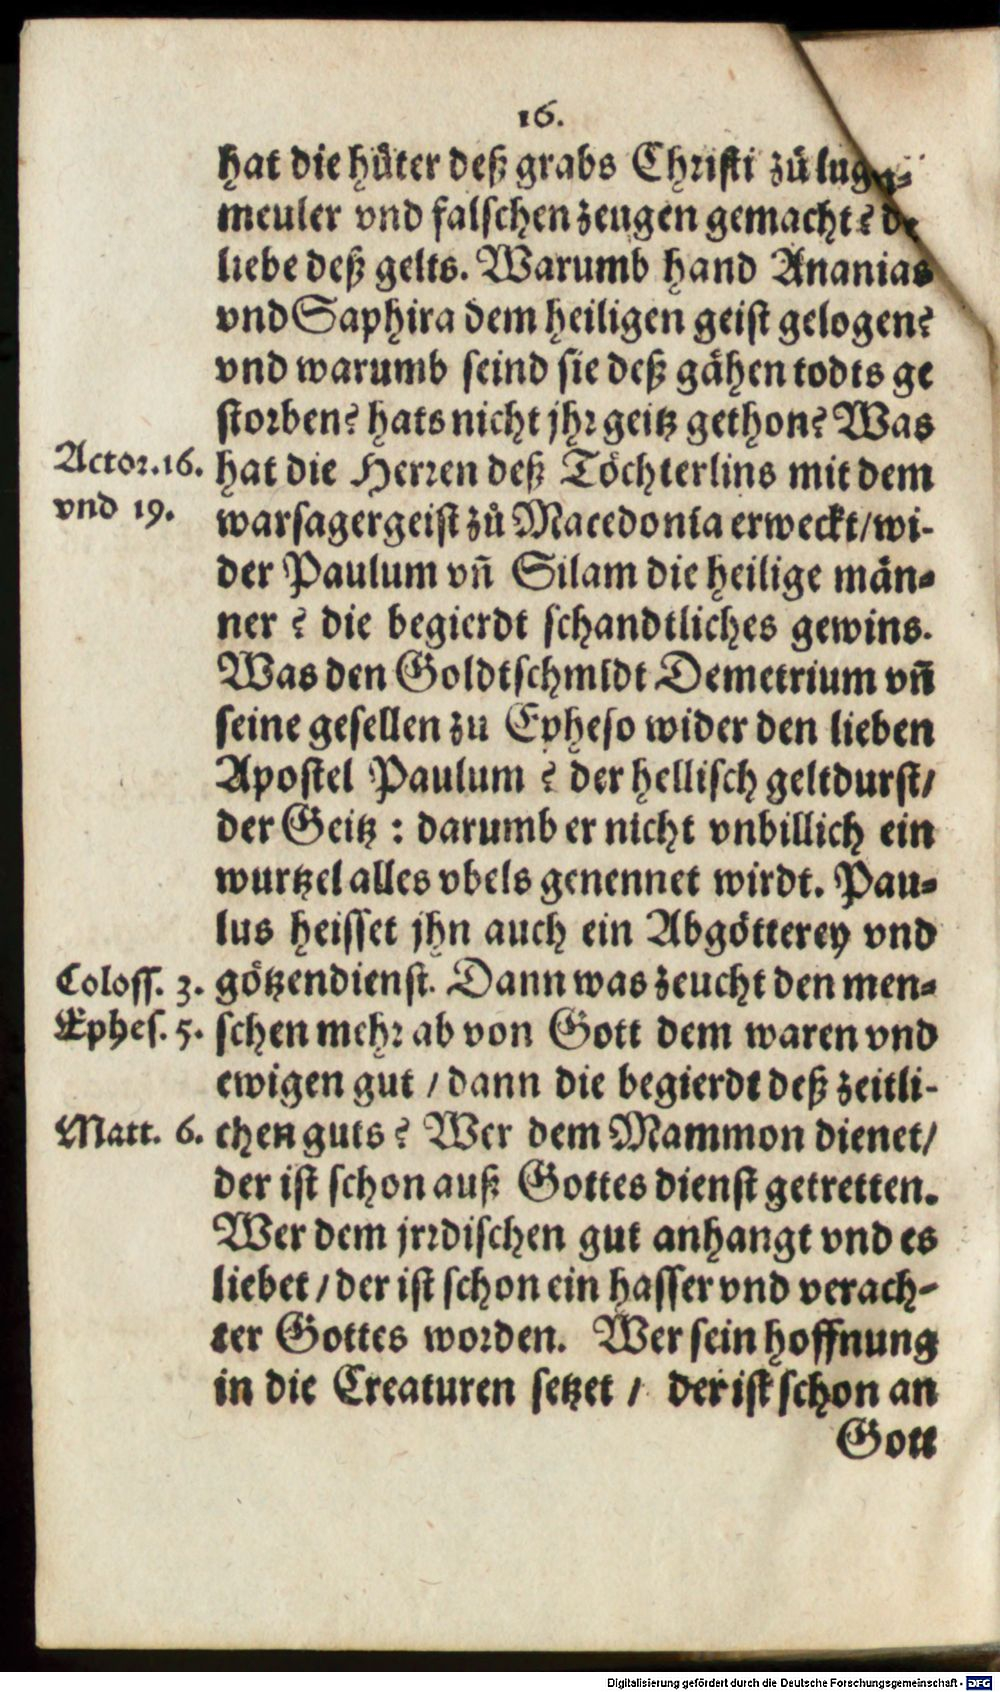 16.
hat die hůter deß grabs Christi zů
meuler vnd falschen zeugen gemacht?
liebe deß gelts. Warumb hand Ananias
vnd Saphira dem heiligen geist gelogen?
vnd warumb seind sie deß gähen todts ge
storben? hats nicht jhr geitz gethon? Was
Actor. 16. hat die Herren deß Töchterlins mit dem
vnd 19. warsagergeist zů Macedonia erweckt/wi-
der Paulum vn̄ Silam die heilige män-
ner? die begierdt schandtliches gewins.
Was den Goldtschmidt Demetrium vn̄
seine gesellen zu Epheso wider den lieben
Apostel Paulum? der hellisch geltdurst/
der Geitz: darumb er nicht vnbillich ein
wurtzel alles vbels genennet wirdt. Pau-
lus heisset jhn auch ein Abgötterey vnd
Coloss. 3. götzendienst. Dann was zeucht den men-
Ephes. 5. schen mehr ab von Gott dem waren vnd
ewigen gut / dann die begierdt deß zeitli-
Matt. 6. chen guts? Wer dem Mammon dienet/
der ist schon auß Gottes dienst getretten.
Wer dem jrrdischen gut anhangt vnd es
liebet / der ist schon ein hasser vnd verach-
ter Gottes worden. Wer sein hoffnung
in die Creaturen setzet / der ist schon an
Gott
Digitalisierung gefördert durch die Deutsche Forschungsgemeinschaft - DFG